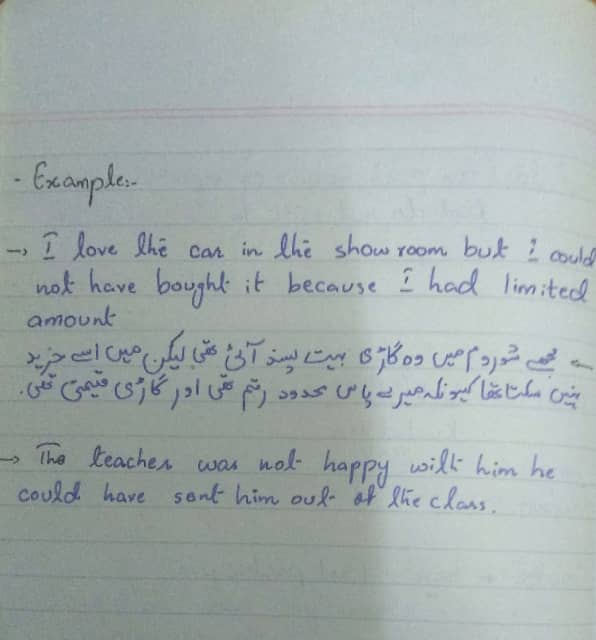 - Example:-
→ I love the car in the show room but i could
not have bought it because I had limited
amount
← مجھے شوروم میں وہ گاڑی بہت پسند آئی تھی لیکن میں اسے خرید
نہیں سکتا تھا کیونکہ میرے پاس محدود رقم تھی اور گاڑی قیمتی تھی.
→ The teacher was not happy with him he
could have sent him out of the class.